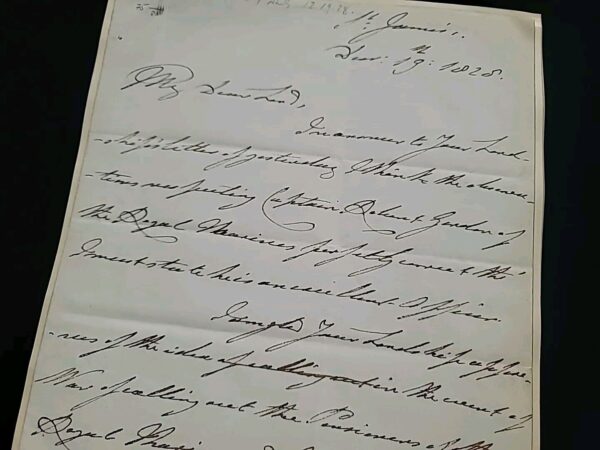 St. James's,
Decr: 19th: 1828.
My Dear Lord,
In answer to Your Lord-
-ship's letter of yesterday I think the observa-
-tions respecting Captain Robert Gordon of
the Royal Marines perfectly correct tho'
I must state he is an excellent Officer.
I am glad Your Lordship appro-
-ves of the idea of calling out in the event of
War of calling out the Pensioners of the
Royal